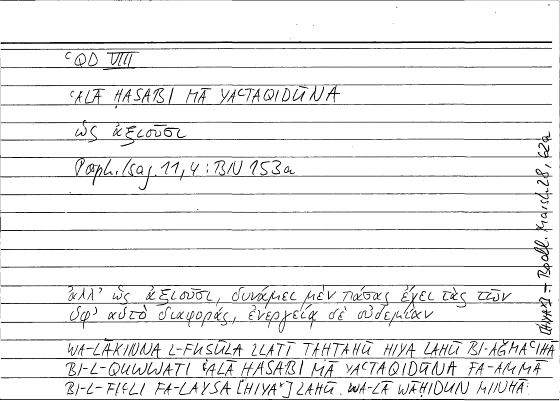 ʿQD VIII
ʿALĀ ḤASABI MĀ YAʿTAQIDŪNA
ὡς ἀξιοῦσι
Porph. Isag. 11,4 : BN 153a
ἀλλ' ὡς ἀξιοῦσι, δυνάμει μὲν πάσας ἔχει τὰς τῶν
ὑφ' αὑτὸ διαφοράς, ἐνεργείᾳ δὲ οὐδεμίαν
WA-LĀKINNA L-FUṢŪLA LLATĪ TAḤTAHŪ HIYA LAHŪ BI-AǦMAʿIHĀ
BI-L-QUWWATI ʿALĀ ḤASABI MĀ YAʿTAQIDŪNA FA-AMMĀ
BI-L-FIʿLI FA-LAYSA [HIYA*] LAHŪ. WA-LĀ WĀḤIDUN MINHĀ.
[HIYA*] = Bodl. Marsh. 28, 62a